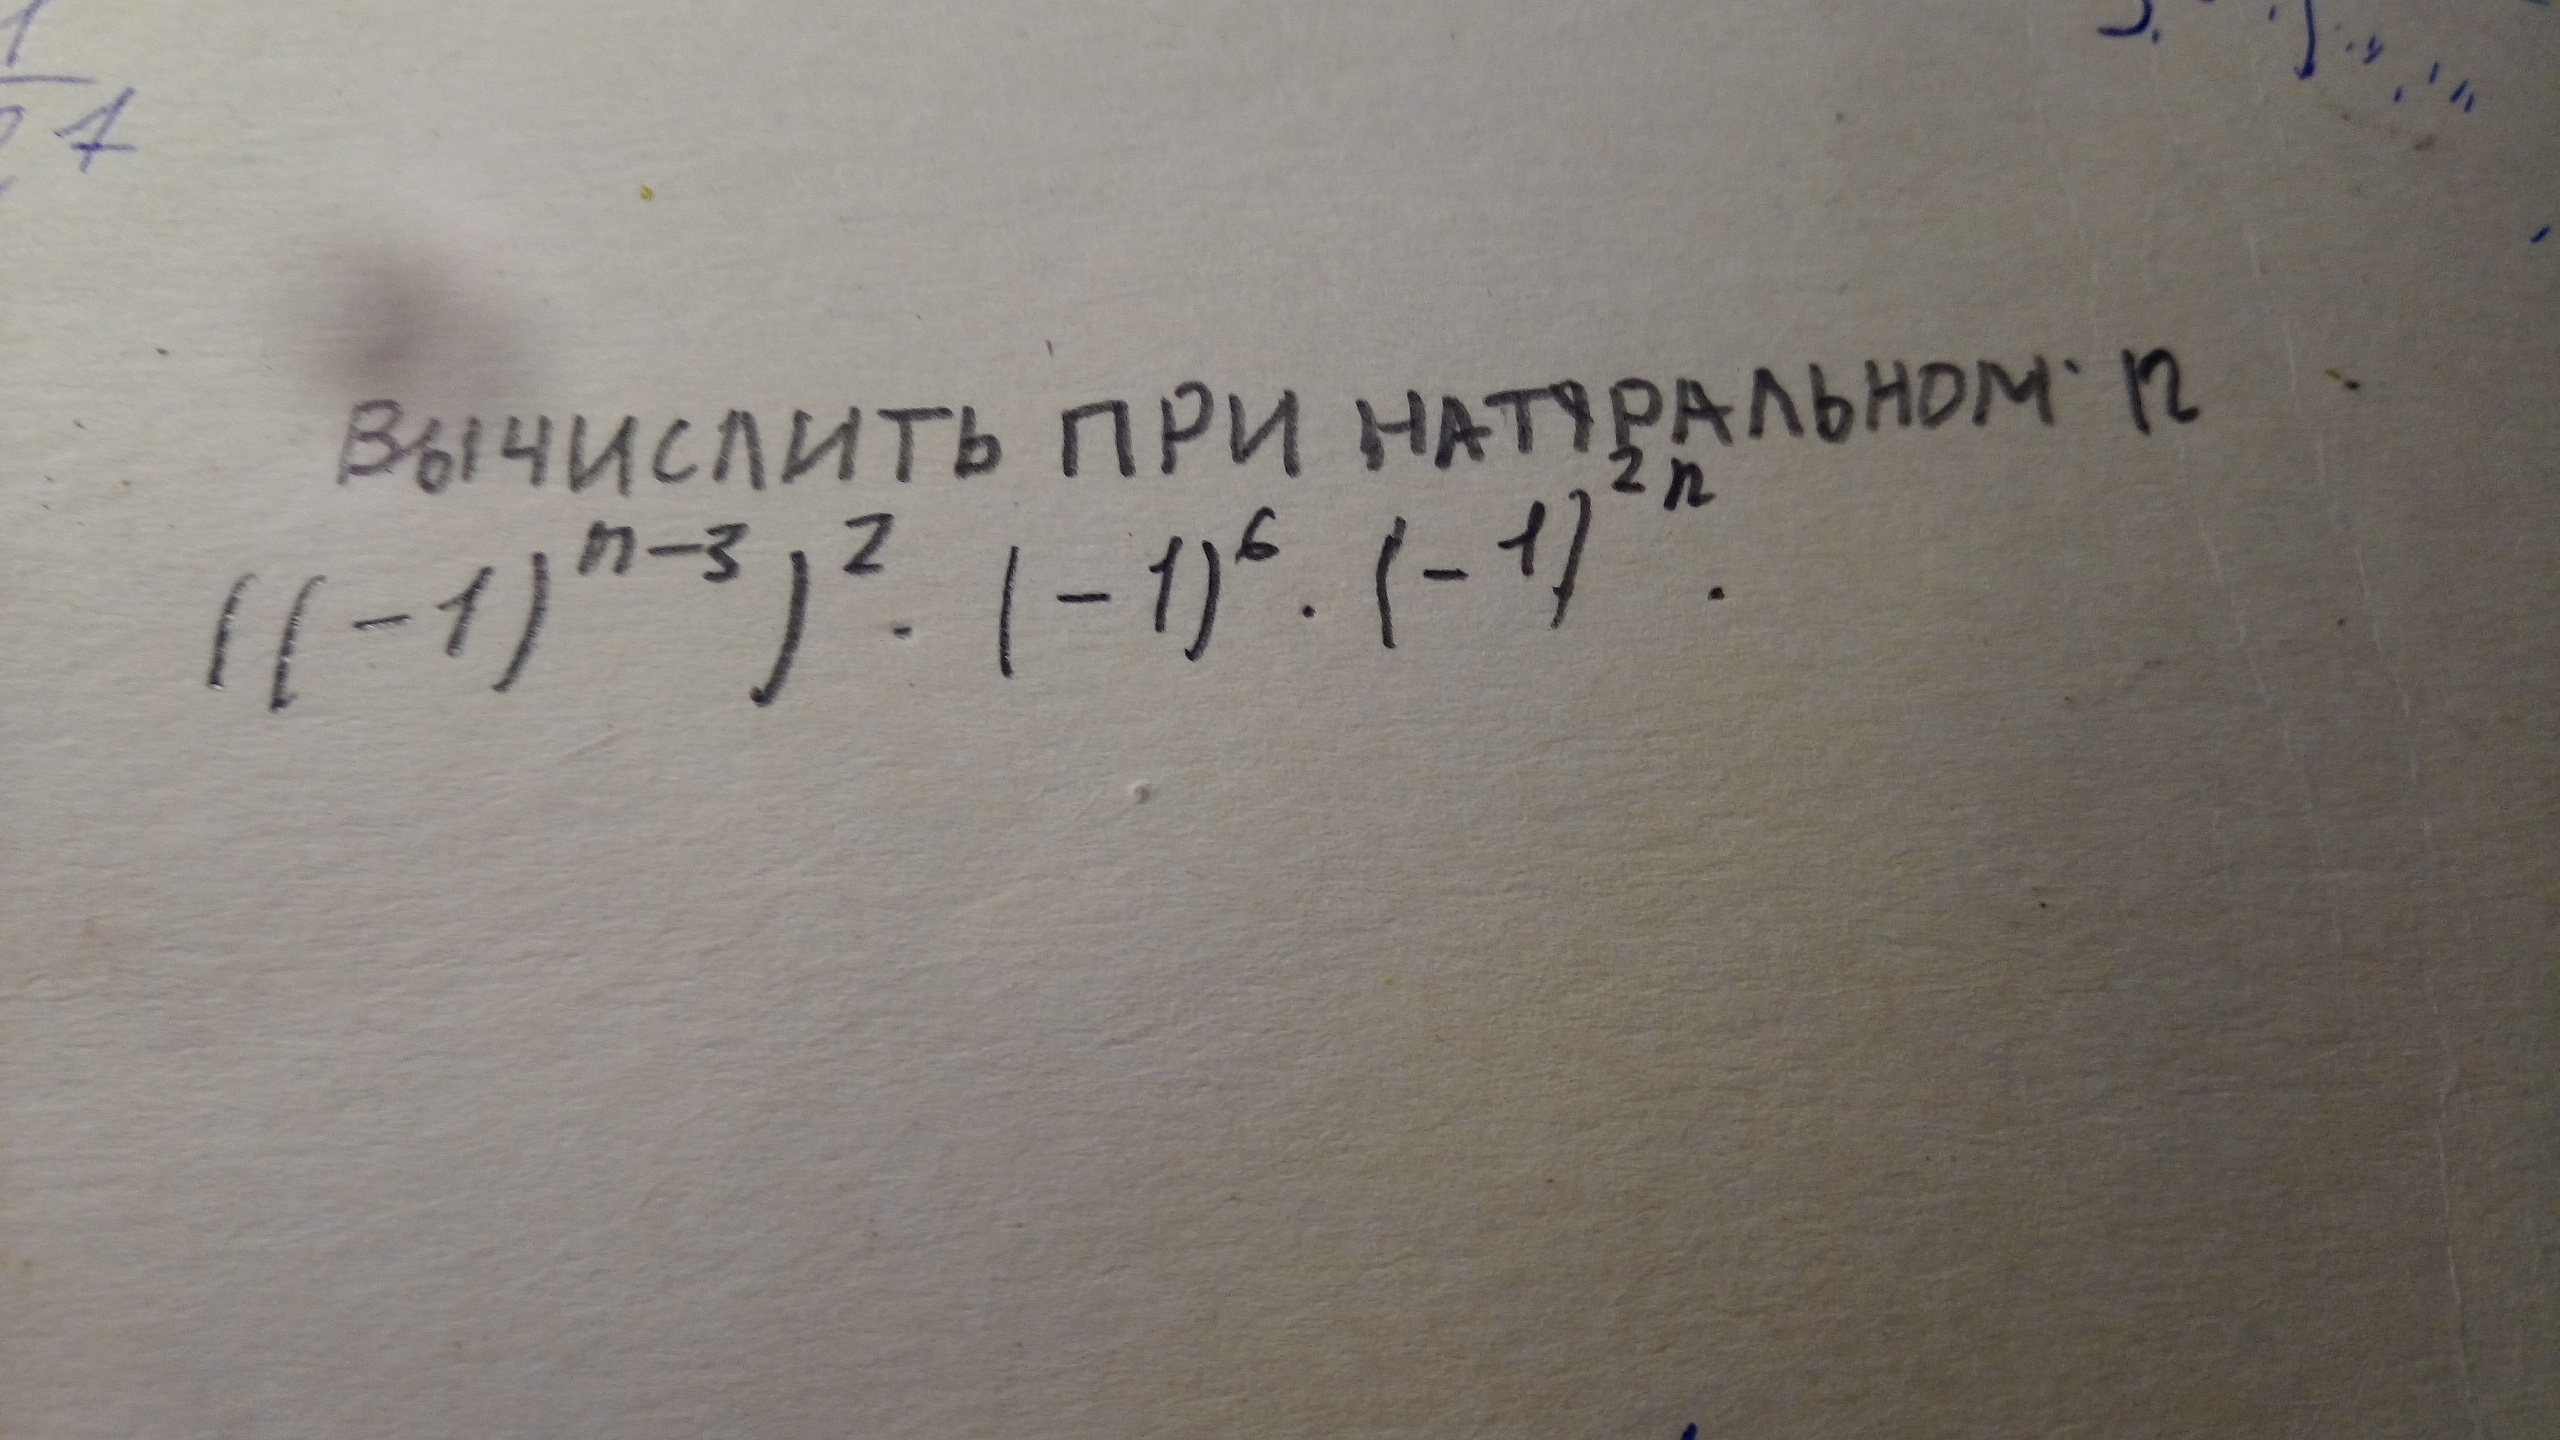 1
7
ВЫЧИСЛИТЬ ПРИ НАТУРАЛЬНОМ n
((-1)^{n-3})^2 · (-1)^6 · (-1)^{2n} .